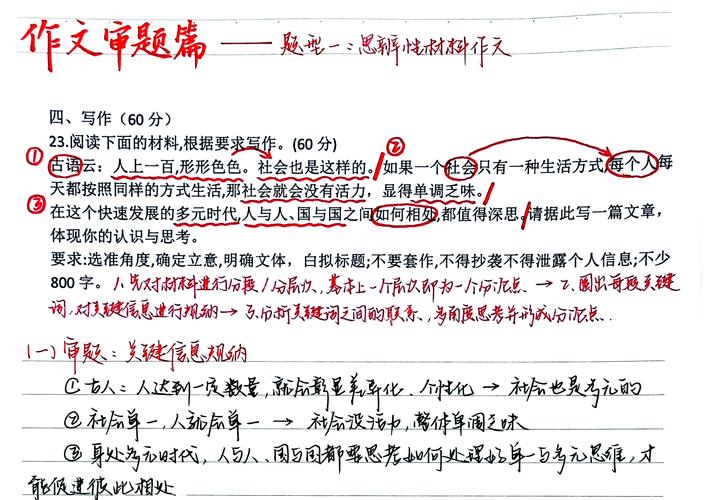 作文审题篇 —— 题型一:思辨性材料作文
四、写作（60分）
23.阅读下面的材料,根据要求写作。(60分)
① ②
古语云：人上一百,形形色色。社会也是这样的。/如果一个社会只有一种生活方式,每个人每
天都按照同样的方式生活,那社会就会没有活力，显得单调乏味。/
③
在这个快速发展的多元时代,人与人、国与国之间如何相处,都值得深思。/请据此写一篇文章，
体现你的认识与思考。
要求:选准角度,确定立意,明确文体，白拟标题;不要套作,不得抄袭不得泄露个人信息;不少
800字。1.先对材料进行分段/分层次，基本上一个层次即为一个分论点 → 2.圈出每段关键
词,对关键信息进行规纳 → 3.分析关键词之间的联系,多角度思考并形成分论点.
(一)审题：关键信息规纳
①古人：人达到一定数量,就会彰显差异化、个性化 → 社会也是多元的
②社会单一,人就会单一 → 社会没活力,整体单调乏味
③身处多元时代，人与人、国与国都要思考如何处理好单一与多元思维，才
能促进彼此相处